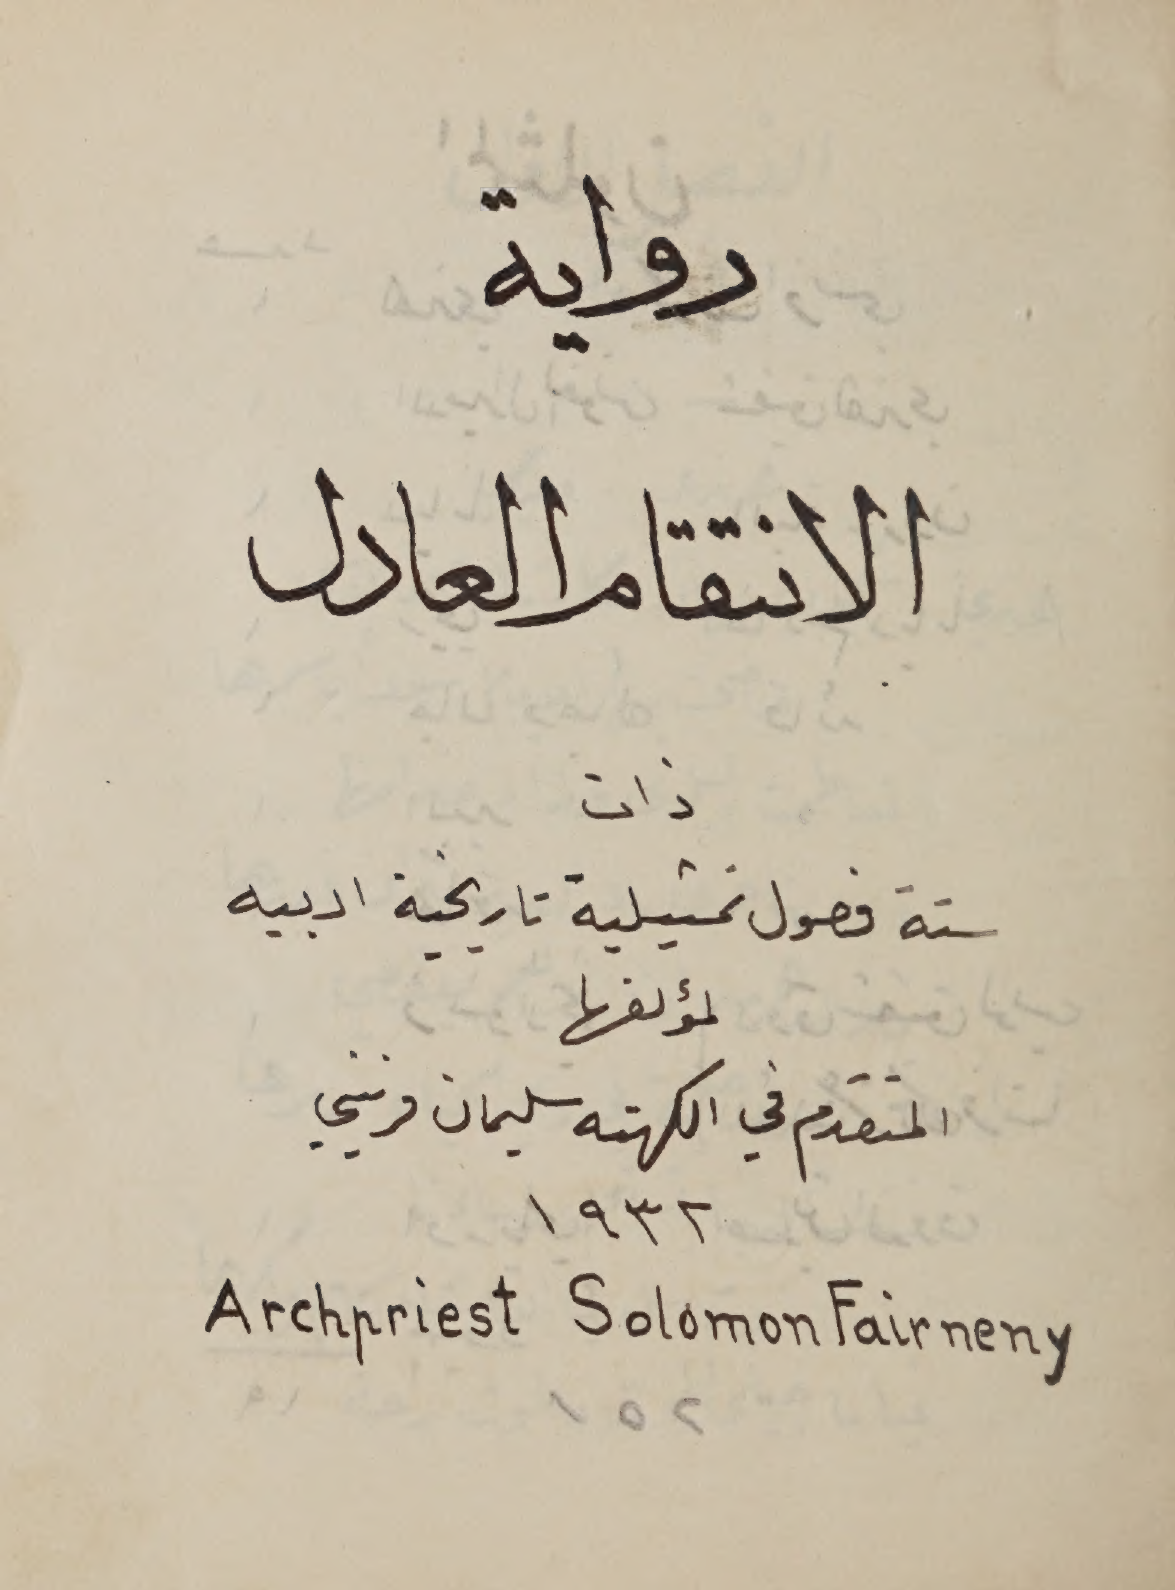 رواية
الانتقام العادل
ذات
ستة فصول تمثيلية تاريخية ادبيه
لمؤلفها
المتقدم في الكهنه سليمان فرنيني
١٩٣٢
Archpriest Solomon Fairneny